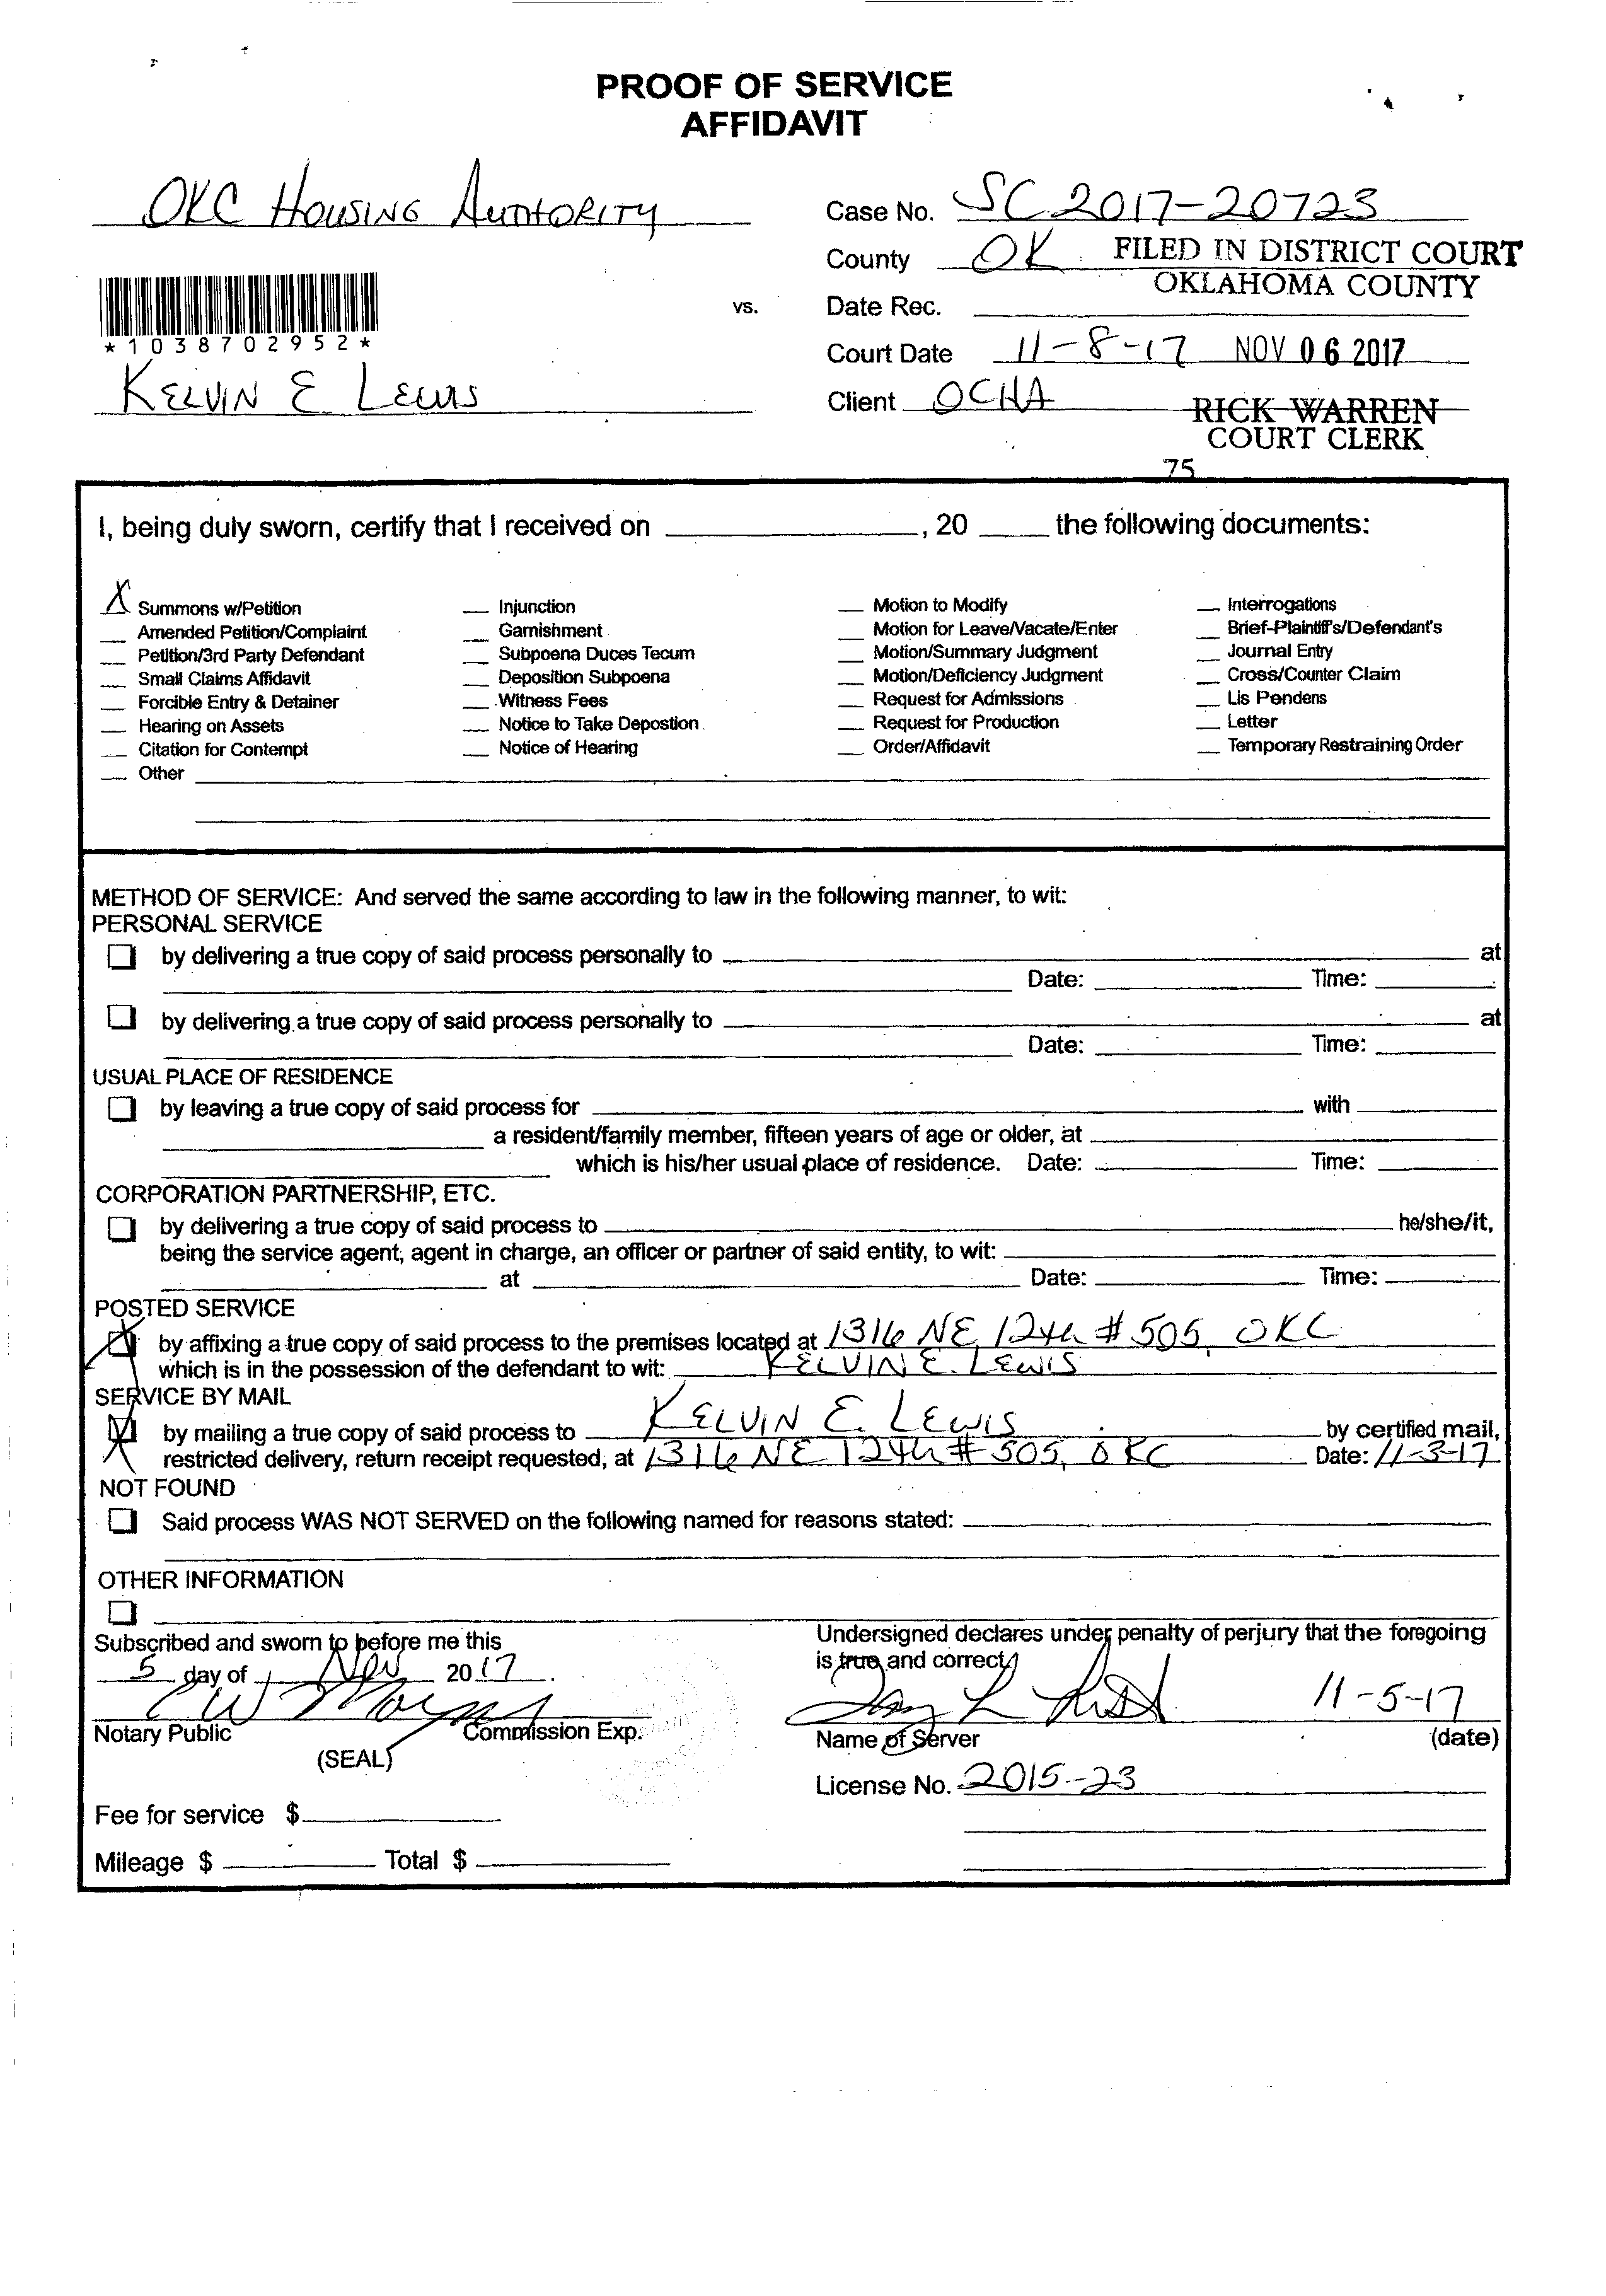 PROOF OF SERVICE
AFFIDAVIT
OKC HOUSING AUTHORITY
Case No. SC 2017-20723
County OK
FILED IN DISTRICT COURT
OKLAHOMA COUNTY
vs.
Date Rec.
*1038702952*
Court Date 11-8-17 NOV 06 2017
KELVIN E LEWIS
Client OCHA
RICK WARREN
COURT CLERK
75
I, being duly sworn, certify that I received on ____, 20 ____ the following documents:
X Summons w/Petition
Amended Petition/Complaint
Petition/3rd Party Defendant
Small Claims Affidavit
Forcible Entry & Detainer
Hearing on Assets
Citation for Contempt
Other
Injunction
Garnishment
Subpoena Duces Tecum
Deposition Subpoena
Witness Fees
Notice to Take Depostion
Notice of Hearing
Motion to Modify
Motion for Leave/Vacate/Enter
Motion/Summary Judgment
Motion/Deficiency Judgment
Request for Admissions
Request for Production
Order/Affidavit
Interrogations
Brief-Plaintiff's/Defendant's
Journal Entry
Cross/Counter Claim
Lis Pendens
Letter
Temporary Restraining Order
METHOD OF SERVICE: And served the same according to law in the following manner, to wit:
PERSONAL SERVICE
by delivering a true copy of said process personally to ____ at
Date: ____ Time: ____
by delivering a true copy of said process personally to ____ at
Date: ____ Time: ____
USUAL PLACE OF RESIDENCE
by leaving a true copy of said process for ____ with ____
a resident/family member, fifteen years of age or older, at ____
which is his/her usual place of residence. Date: ____ Time: ____
CORPORATION PARTNERSHIP, ETC.
by delivering a true copy of said process to ____ he/she/it,
being the service agent, agent in charge, an officer or partner of said entity, to wit: ____
____ at ____ Date: ____ Time: ____
POSTED SERVICE
X by affixing a true copy of said process to the premises located at 1316 NE 12th # 505, OKC
which is in the possession of the defendant to wit: KELVIN E. LEWIS
SERVICE BY MAIL
X by mailing a true copy of said process to KELVIN E. LEWIS by certified mail,
restricted delivery, return receipt requested, at 1316 NE 12th # 505, OKC Date: 11-3-17
NOT FOUND
Said process WAS NOT SERVED on the following named for reasons stated: ____
OTHER INFORMATION
Subscribed and sworn to before me this
5 day of Nov 2017.
Notary Public Commission Exp.
(SEAL)
Fee for service $
Mileage $ ____ Total $ ____
Undersigned declares under penalty of perjury that the foregoing
is true and correct
11-5-17
Name of Server (date)
License No. 2015-23